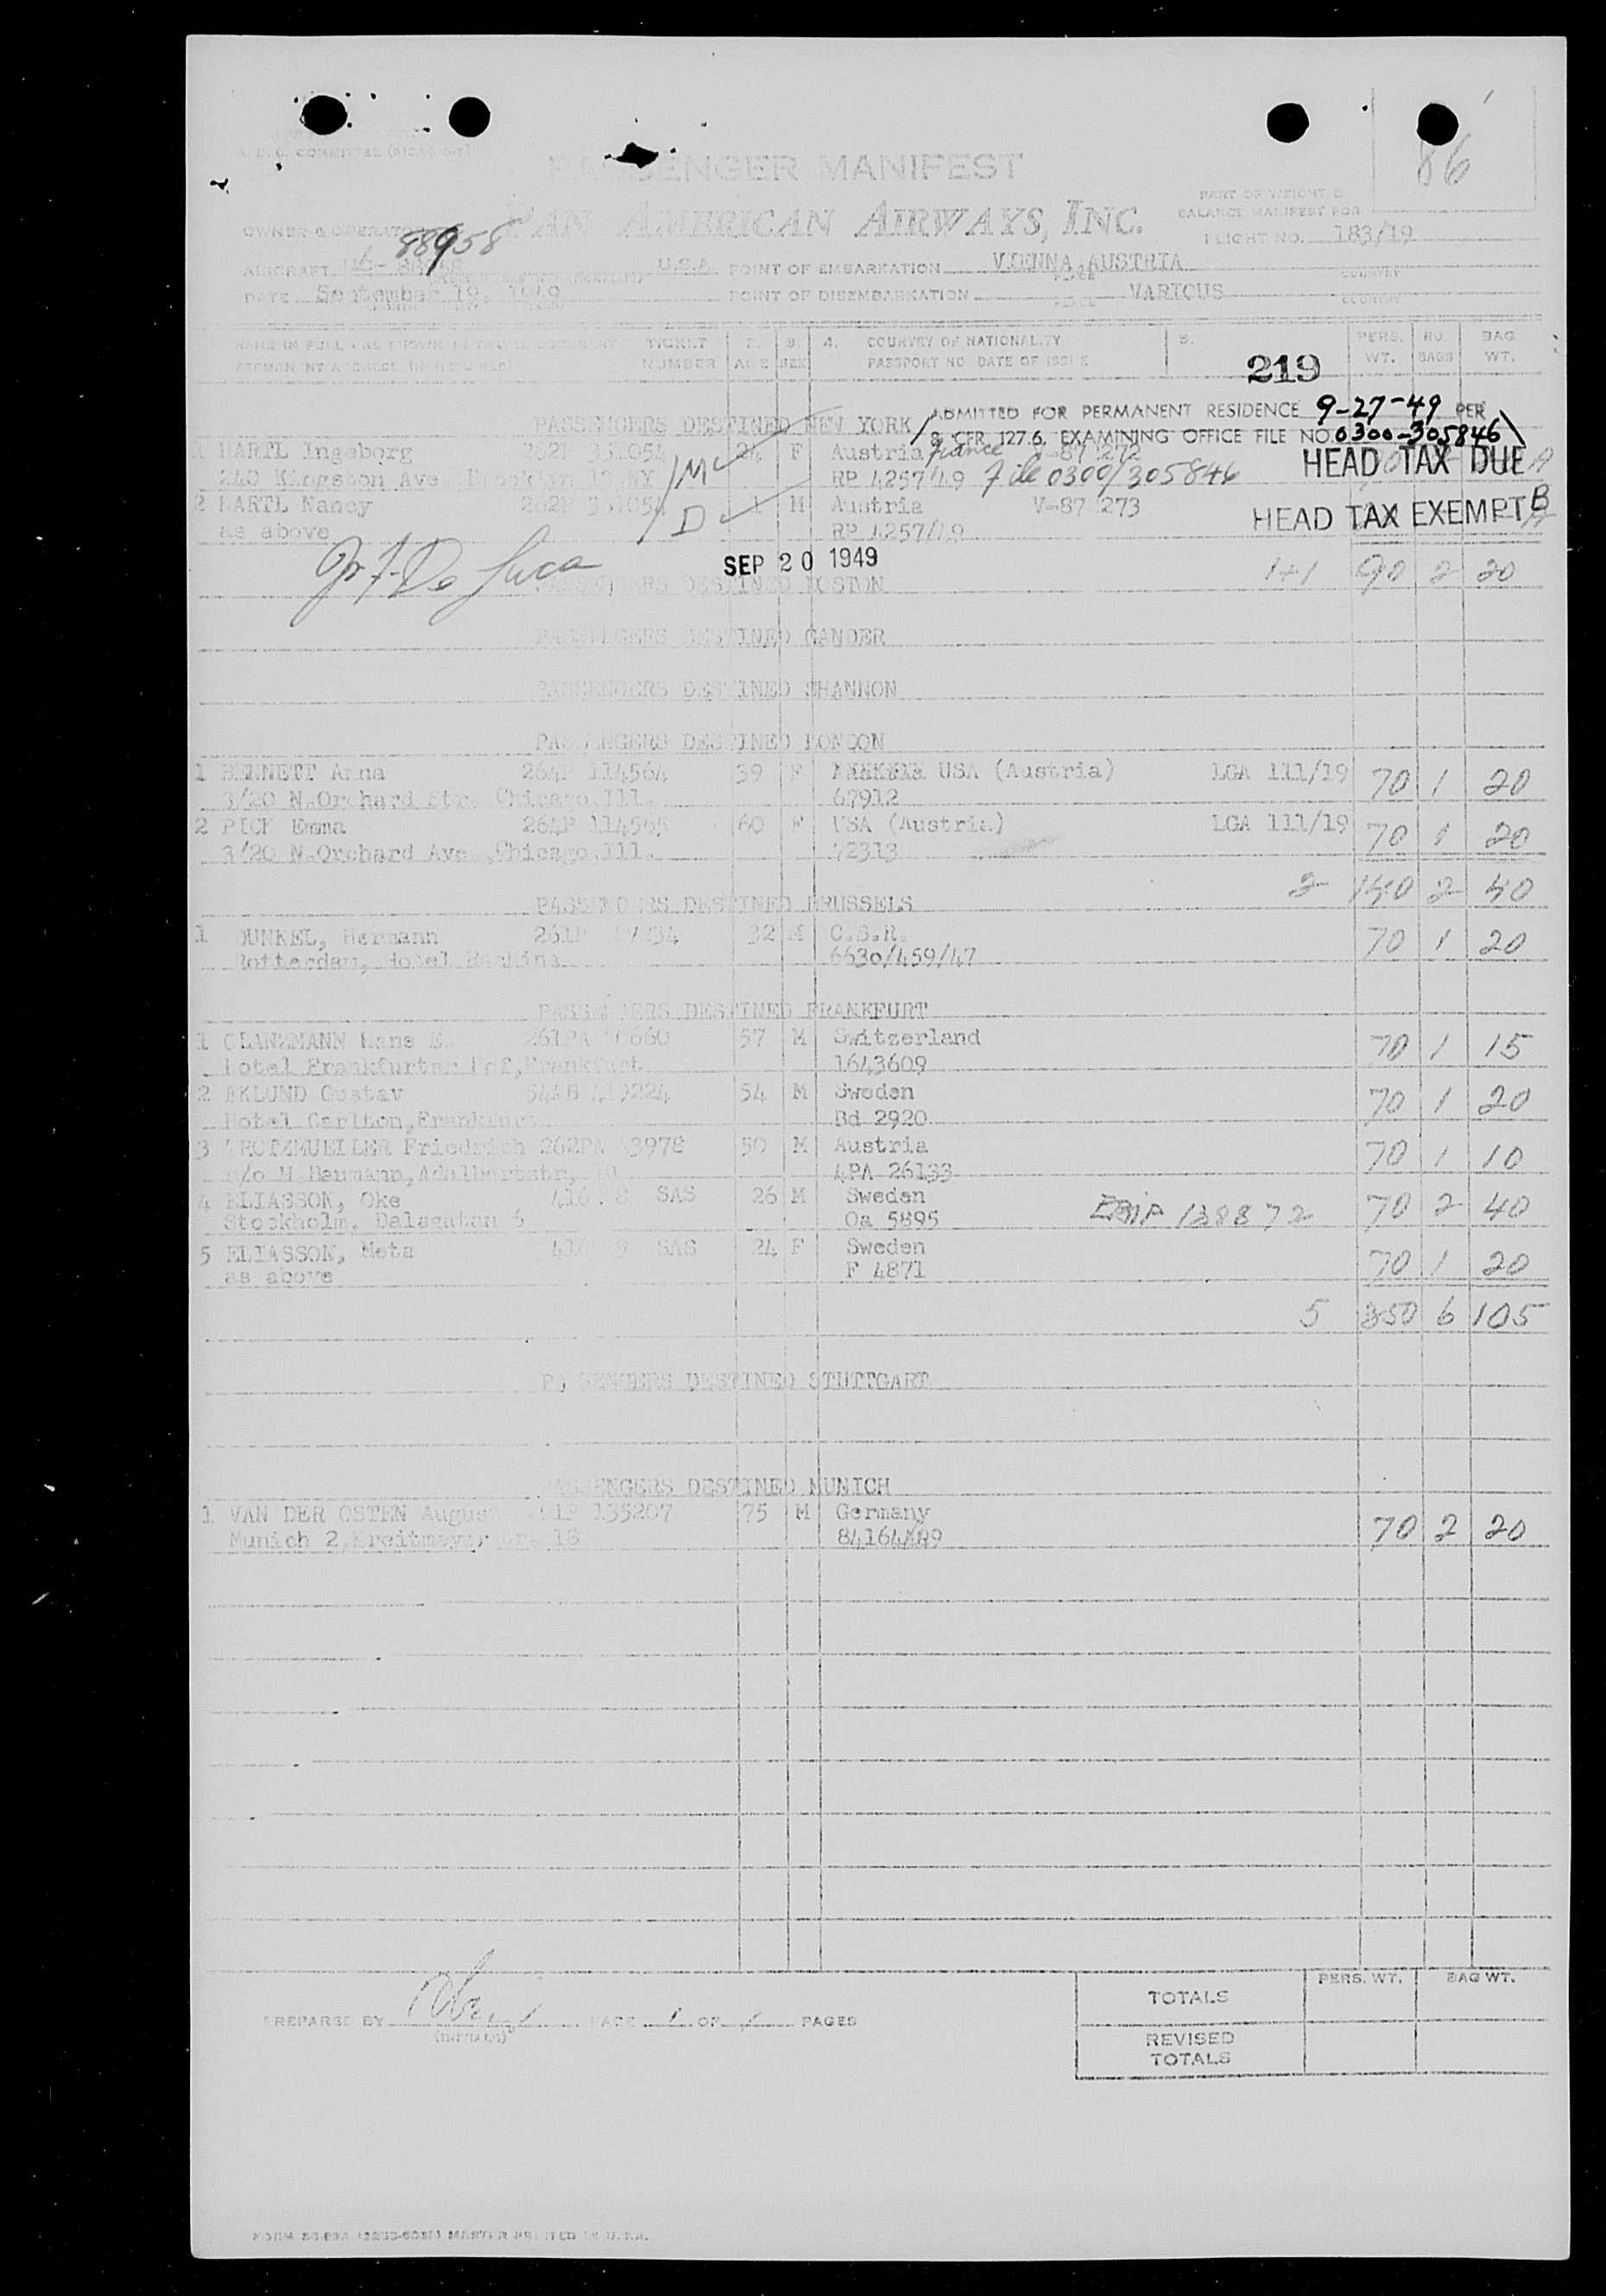 86
PASSENGER MANIFEST
PART OF WEIGHT &
BALANCE MANIFEST FOR
PAN AMERICAN AIRWAYS, INC.
OWNER & OPERATOR
88958
FLIGHT NO. 183/19
AIRCRAFT U.S.A. POINT OF EMBARKATION VIENNA, AUSTRIA
PLACE COUNTRY
DATE September 19, 1949 POINT OF DISEMBARKATION VARIOUS
PLACE COUNTRY
NAME IN FULL AS SHOWN IN TRAVEL DOCUMENT TICKET 2. 3. 4. COUNTRY OF NATIONALITY 5. PERS. NO. BAG
PERMANENT ADDRESS NUMBER AGE SEX PASSPORT NO DATE OF ISSUE WT. BAGS WT.
219
ADMITTED FOR PERMANENT RESIDENCE 9-27-49 PER
PASSENGERS DESTINED NEW YORK
8 CFR 127.6, EXAMINING OFFICE FILE NO. 0300-305846
1 HARTL Ingeborg 262P 331054 24 F Austria France V-87 272
HEAD TAX DUE A
240 Kingston Ave. Brooklyn 13, NY M RP 4257/49 File 0300/305846
2 HARTL Nancy 262P 331054 1 M Austria V-87 273
HEAD TAX EXEMPT B
as above D RP 4257/49
SEP 20 1949
De Luca
1+1 90 2 20
PASSENGERS DESTINED BOSTON
PASSENGERS DESTINED GANDER
PASSENGERS DESTINED SHANNON
PASSENGERS DESTINED LONDON
1 BENNETT Anna 264P 114564 39 F USA (Austria) LGA 111/19 70 1 20
3720 N.Orchard Str. Chicago, Ill. 67912
2 PICK Emma 264P 114565 60 F USA (Austria) LGA 111/19 70 1 20
3720 N.Orchard Ave., Chicago, Ill. 72313
2 140 2 40
PASSENGERS DESTINED BRUSSELS
1 DUNKEL, Hermann 32 M C.S.R. 70 1 20
Rotterdam, Hotel 6630/459/47
PASSENGERS DESTINED FRANKFURT
1 GLANZMANN Hans E. 57 M Switzerland 70 1 15
Hotel Frankfurter Hof, Frankfurt 1643609
2 EKLUND Gustav 54 M Sweden 70 1 20
Hotel Carlton, Frankfurt Bd 2920
3 TROTZMUELLER Friedrich 262PA 50 M Austria 70 1 10
c/o H Baumann, Adalbertstr, 10 4PA 26133
4 ELIASSON, Oke SAS 26 M Sweden 138872 70 2 40
Stockholm. Dalagatan 6 Oa 5895
5 ELIASSON, Meta SAS 24 F Sweden 70 1 20
as above F 4871
5 350 6 105
PASSENGERS DESTINED STUTTGART
PASSENGERS DESTINED MUNICH
1 VAN DER OSTEN August 135207 75 M Germany 70 2 20
Munich 2, 18 84164/489
PERS. WT. BAG WT.
TOTALS
PREPARED BY PAGE 1 OF 1 PAGES
(INITIALS)
REVISED
TOTALS
MASTER PRINTED IN U.S.A.